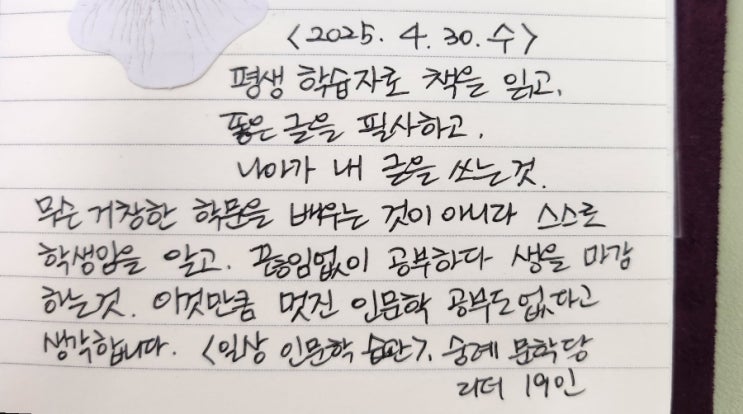 <2025. 4. 30. 수>
평생 학습자로 책을 읽고,
좋은 글을 필사하고,
나아가 내 글을 쓰는것.
무슨 거창한 학문을 배우는 것이 아니라 스스로
학생임을 알고, 끊임없이 공부하다 생을 마감
하는것. 이것만큼 멋진 인문학 공부도 없다고
생각합니다. <일상 인문학 습관>, 숭례 문학당
리더 19인